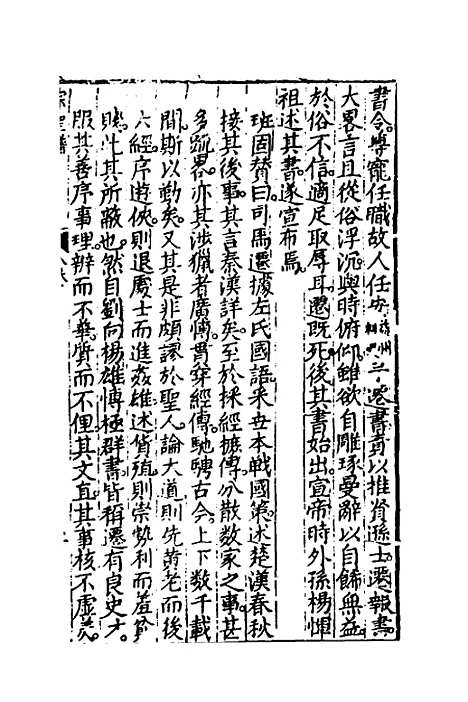 書令尊寵任職故人任安 刺 州 遷書責以推賢進士遷報書
大畧言且從俗浮沉與時俯仰雖欲自雕琢曼辭以自飾無益
於俗不信適足取辱耳遷既死後其書始出宣帝時外孫楊惲
祖述其書遂宣布焉
班固賛曰司馬遷據左氏國語采世本戰國策述楚漢春秋
接其後事其言秦漢詳矣至於採經摭傳分散數家之事甚
多疏畧亦其涉獵者廣傳貫穿經傳馳騁古今上下數千載
間斯以勤矣又其是非頗謬於聖人論大道則先黄老而後
六經序遊俠則退處士而進姦雄述貨殖則崇勢利而羞貧
賤此其所蔽也然自劉向楊雄博極群書皆稱遷有良史才
服其善序事理辨而不華質而不俚其文直其事核不虚美